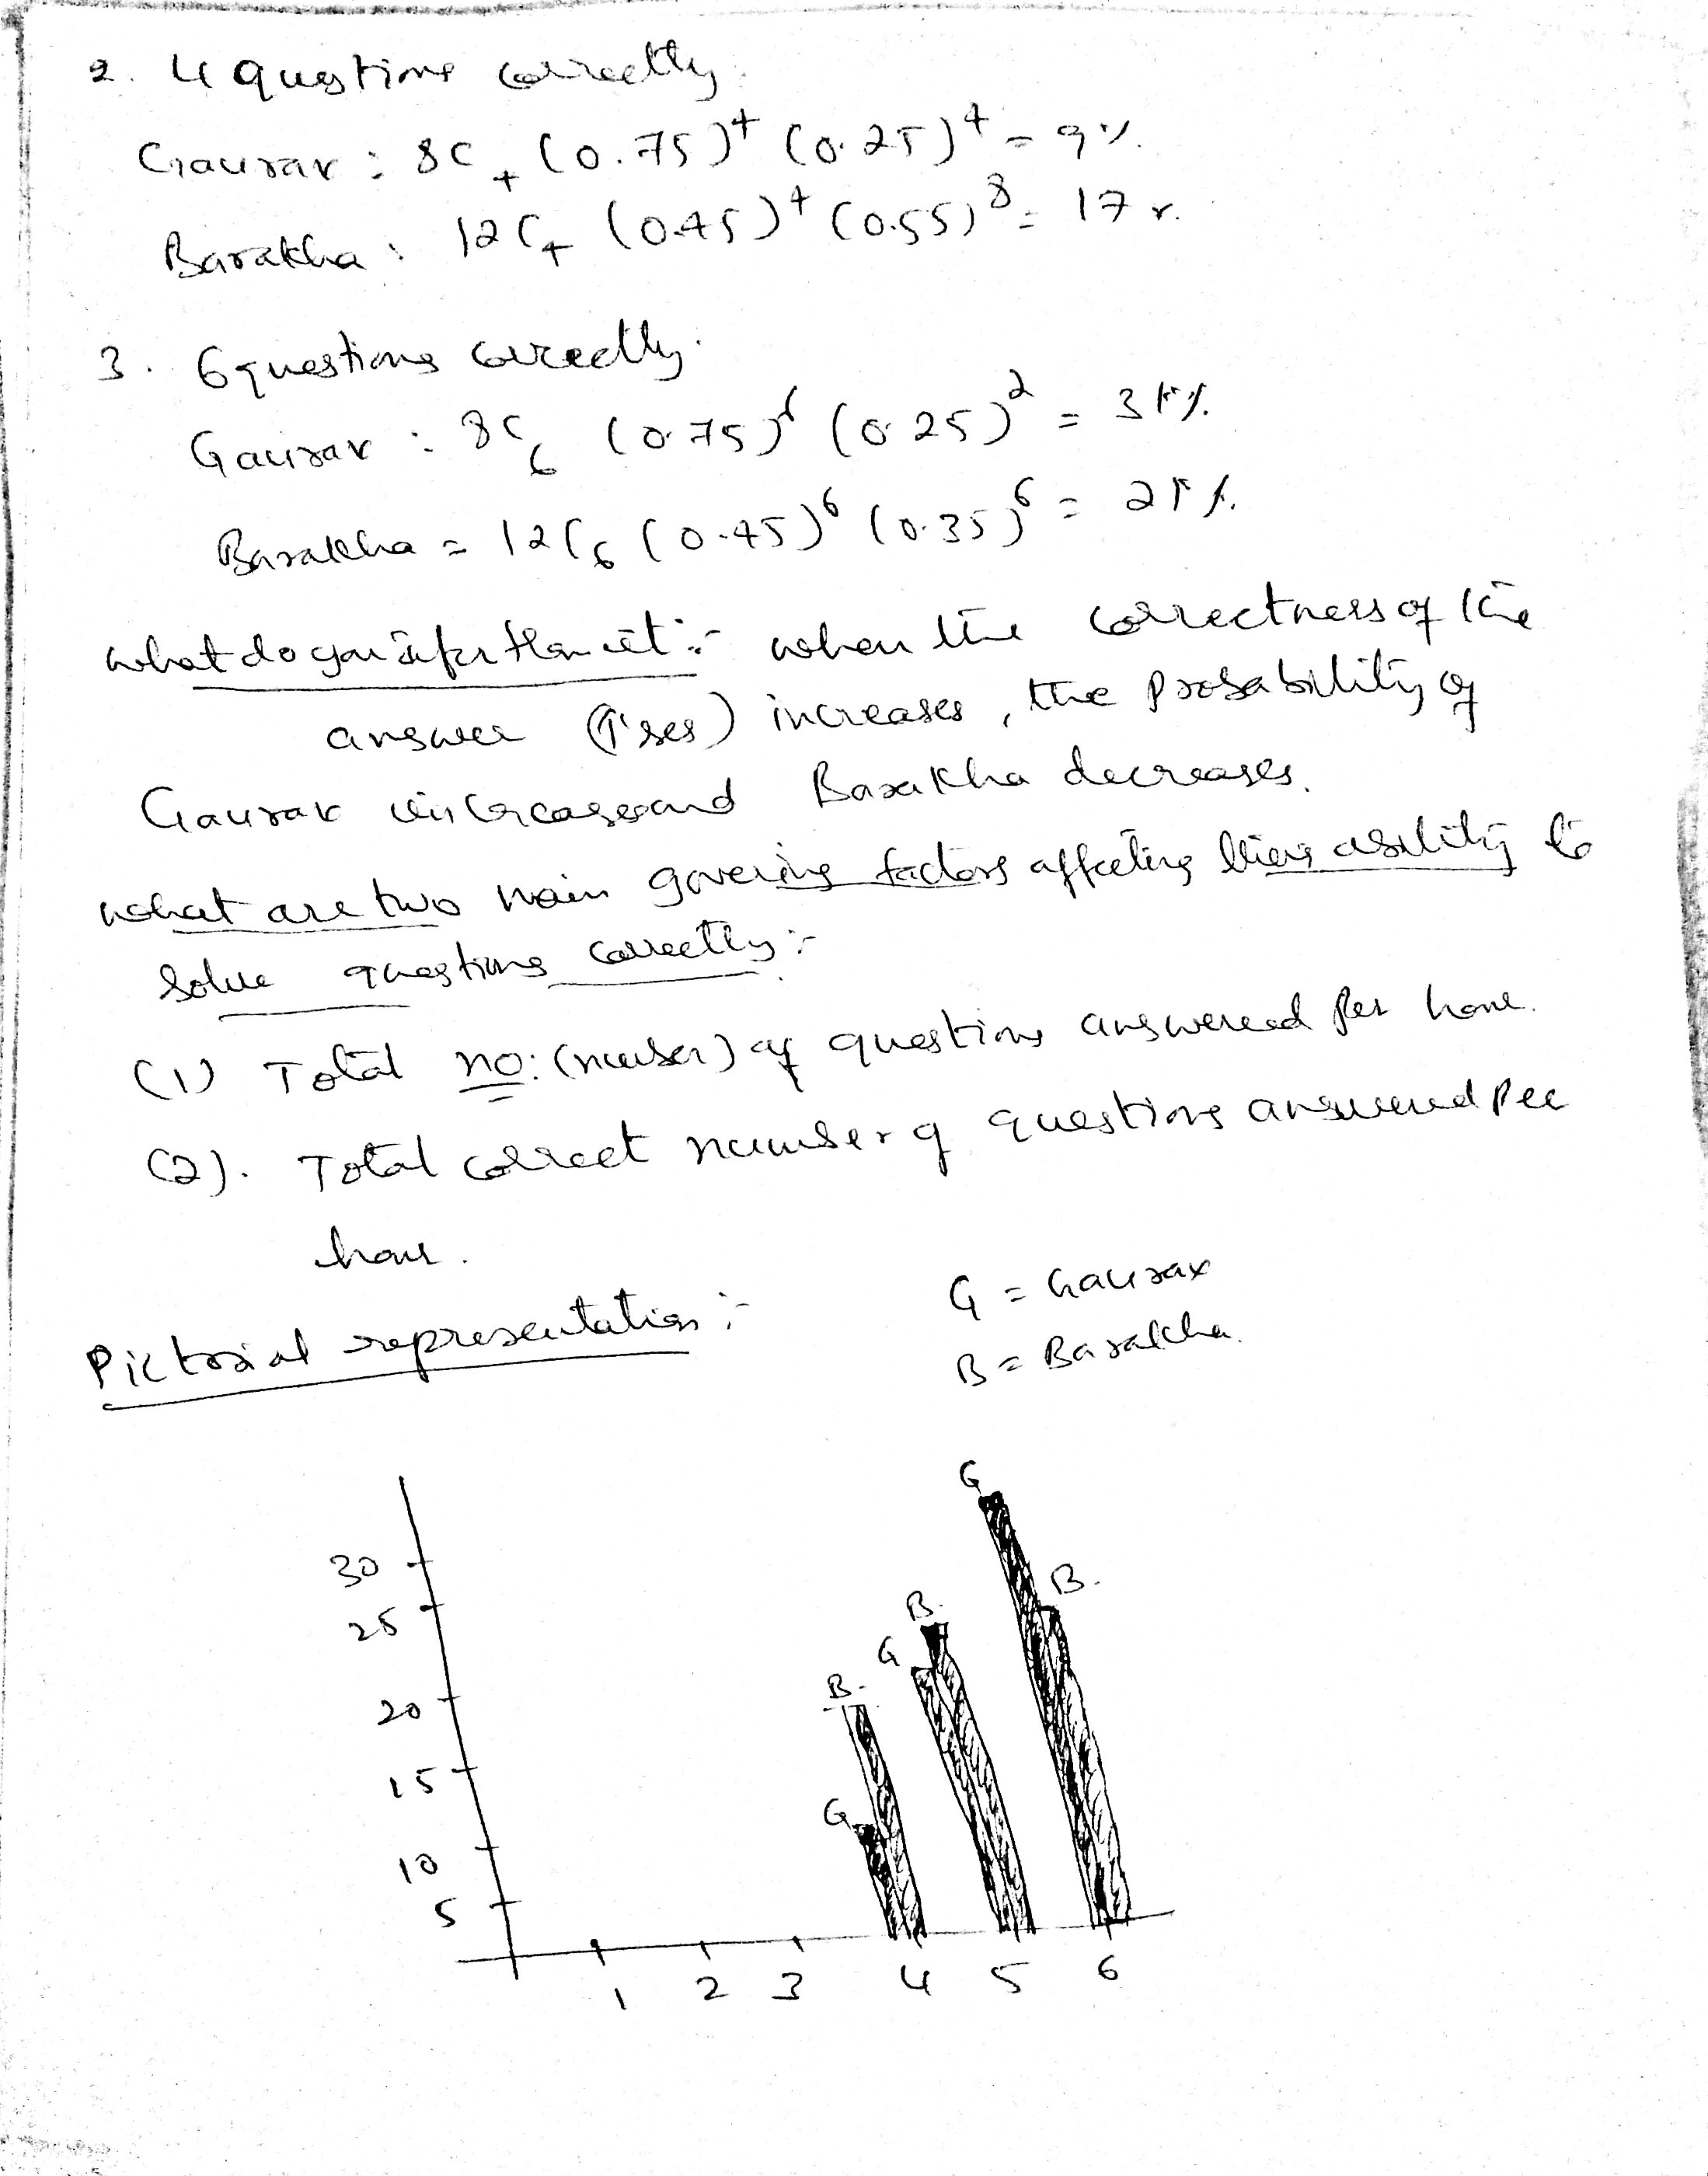 2. 4 questions correctly.
Gaurav : 8C4 (0.75)4 (0.25)4 = 9%.
Barakha : 12C4 (0.45)4 (0.55)8 = 17%.
3. 6 questions correctly.
Gaurav : 8C6 (0.75)6 (0.25)2 = 31%.
Barakha = 12C6 (0.45)6 (0.35)6 = 21%.
what do you infer from it :- when the correctness of the
answer increases, the probability of
Gaurav increases and Barakha decreases.
what are two main governing factors affecting their ability to
solve questions correctly :-
(1) Total no: (number) of questions answered per hour.
(2). Total correct number of questions answered per
hour.
Pictorial representation :-
G = Gaurav
B = Barakha.
30
25
20
15
10
5
G
B.
B.
G
B.
G
1 2 3 4 5 6